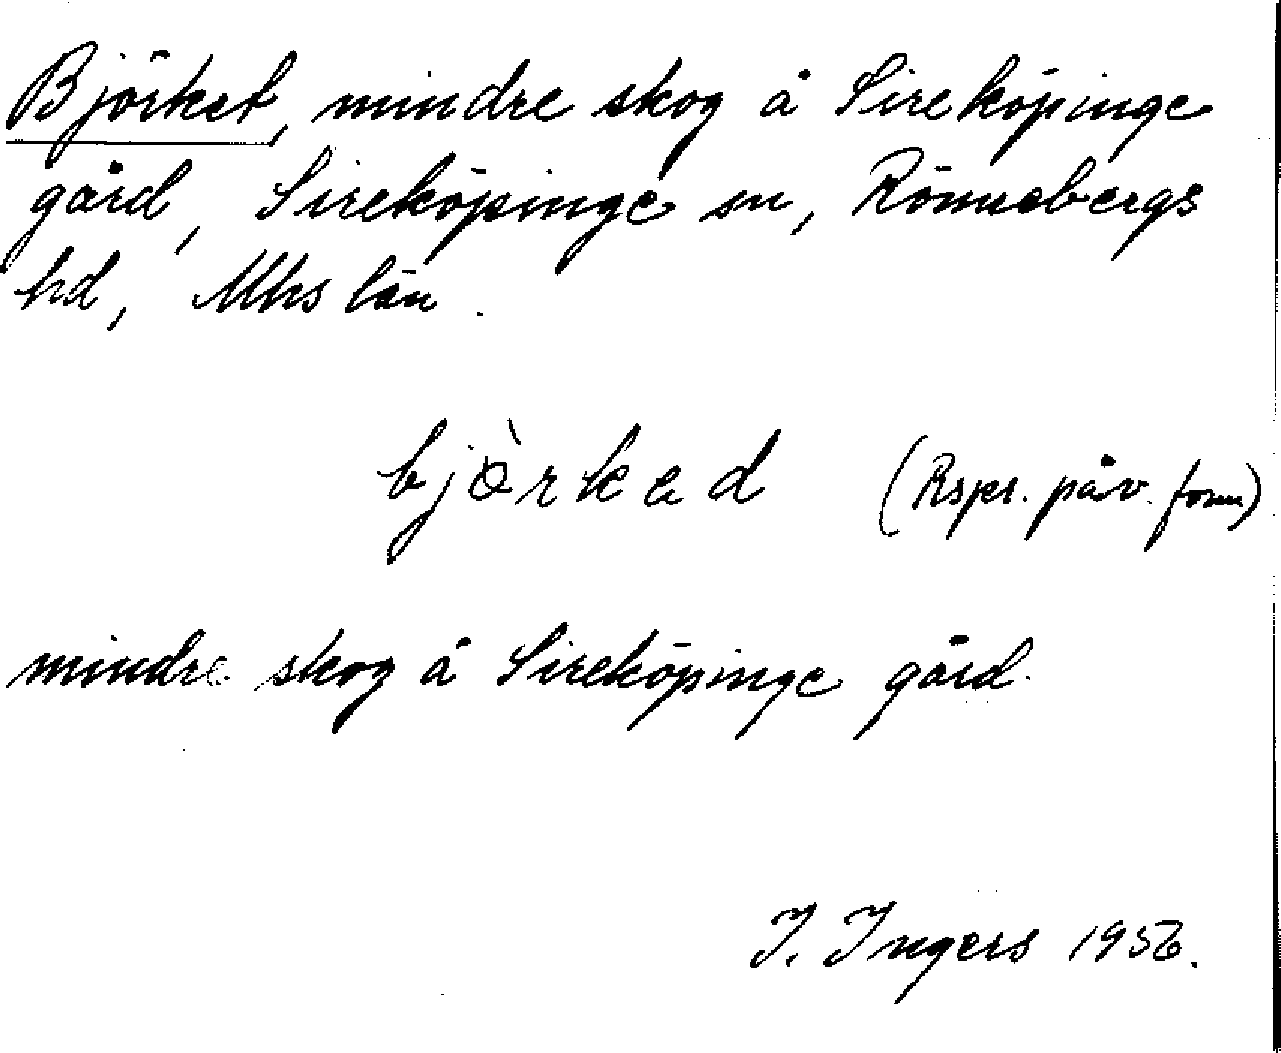 Björket, mindre skog å Sireköpinge
gård, Sireköpinge sn, Rönnebergs
hd, Mhs län.
bjö̀rkad (Rspr. påv. form)
mindre skog å Sireköpinge gård.
I. Ingers 1956.